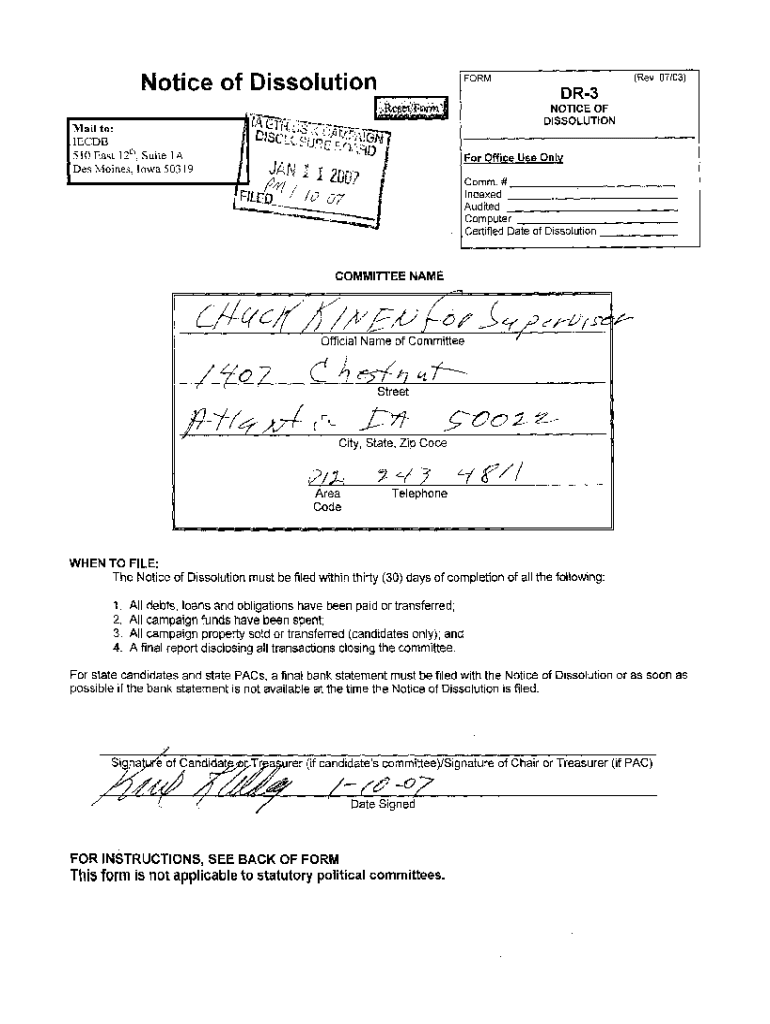 Notice of Dissolution
Reset Form
Mail to:
IECDB
510 East 12th, Suite 1A
Des Moines, Iowa 50319
IA ETHICS & CAMPAIGN
DISCLOSURE BOARD
JAN 11 2007
PM 1 10 07
FILED
FORM (Rev 07/03)
DR-3
NOTICE OF
DISSOLUTION
For Office Use Only
Comm. #
Indexed
Audited
Computer
Certified Date of Dissolution
COMMITTEE NAME
CHUCK KINEN for Supervisor
Official Name of Committee
1407 Chestnut
Street
Atlantic IA 50022
City, State, Zip Code
712 243 4811
Area Telephone
Code
WHEN TO FILE:
The Notice of Dissolution must be filed within thirty (30) days of completion of all the following:
1. All debts, loans and obligations have been paid or transferred;
2. All campaign funds have been spent;
3. All campaign property sold or transferred (candidates only); and
4. A final report disclosing all transactions closing the committee.
For state candidates and state PACs, a final bank statement must be filed with the Notice of Dissolution or as soon as
possible if the bank statement is not available at the time the Notice of Dissolution is filed.
Signature of Candidate or Treasurer (if candidate's committee)/Signature of Chair or Treasurer (if PAC)
1-10-07
Date Signed
FOR INSTRUCTIONS, SEE BACK OF FORM
This form is not applicable to statutory political committees.